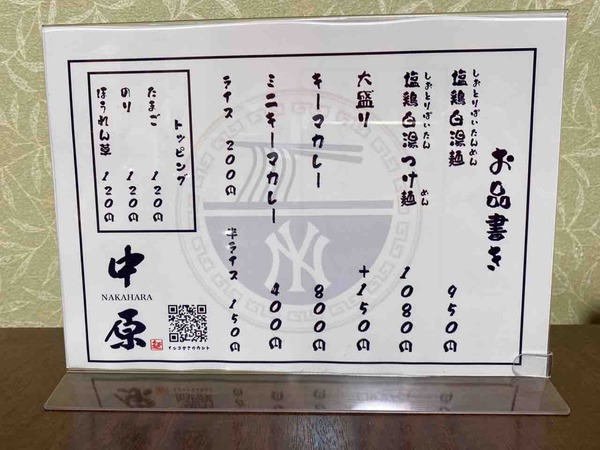 お品書き
しおとりぱいたんめん
塩鶏白湯麺 950円
しおとりぱいたん めん
塩鶏白湯つけ麺 1080円
大盛り +150円
キーマカレー 800円
ミニキーマカレー 400円
ライス 200円 半ライス 150円
トッピング
たまご 120円
のり 120円
ほうれん草 120円
中原
NAKAHARA
NY